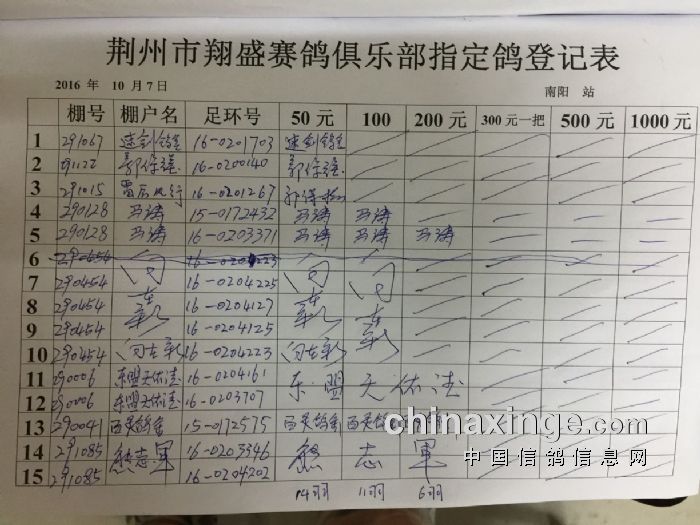 荆州市翔盛赛鸽俱乐部指定鸽登记表
2016 年 10 月 7 日 南阳 站
棚号 棚户名 足环号 50 元 100 200 元 300 元一把 500 元 1000 元
1 291067 速剑鸽舍 16-0201703 速剑鸽舍
2 291122 郭保雄 16-0200140 郭保雄
3 291015 雷厉风行 16-0201267
4 290128 马涛 15-0172432 马涛 马涛
5 290128 马涛 16-0203371 马涛 马涛 马涛
6 290454 16-0204223
7 290454 16-0204225
8 290454 16-0204127
9 290454 16-0204125
10 290454 16-0204223
11 290006 东盟天佑法 16-0204161 东盟 天佑法
12 290006 东盟天佑法 16-0203707
13 290041 15-0172575
14 291085 熊志军 16-0203346 熊 志 军
15 291085 16-0204202
14羽 11羽 6羽
chinaxinge.com
中国信鸽信息网